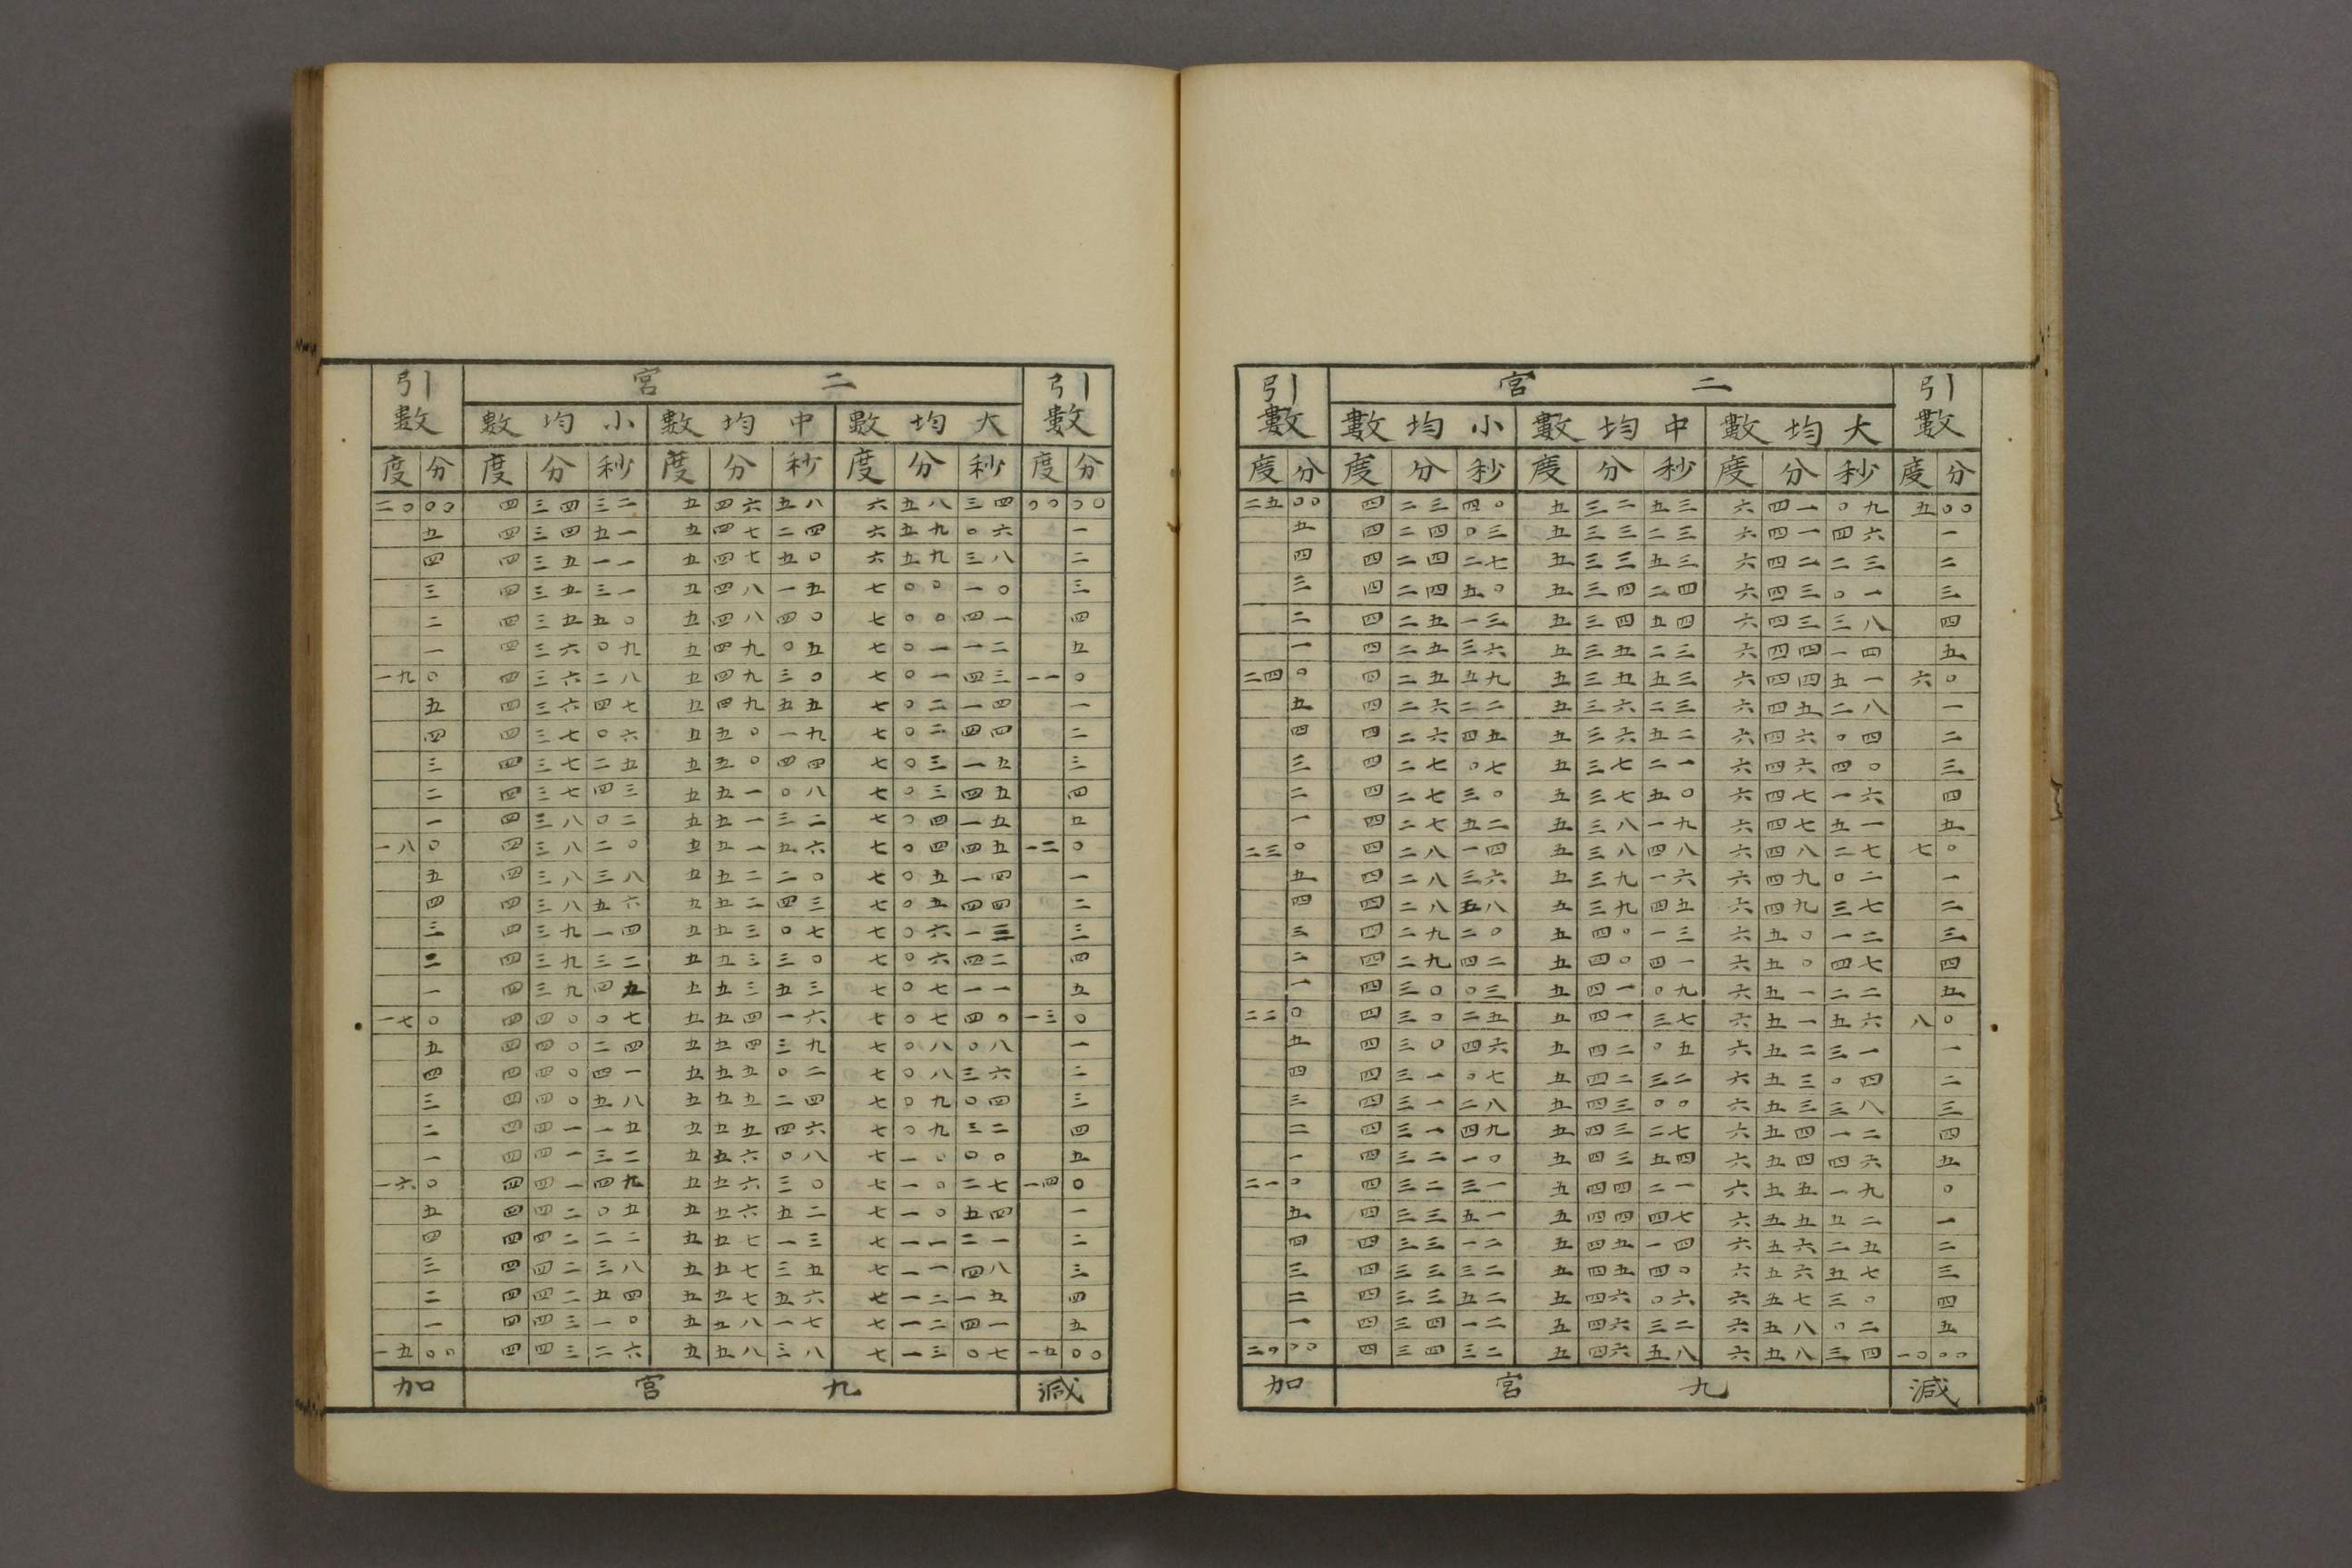 引數 二宮 引數
小均數 中均數 大均數
度 分 度 分 秒 度 分 秒 度 分 秒 度 分
二五 〇〇 四 二三 四〇 五 三二 五三 六 四一 〇九 五 〇〇
五 四 二四 〇三 五 三三 二三 六 四一 四六 一
四 四 二四 二七 五 三三 五三 六 四二 二三 二
三 四 二四 五〇 五 三四 二四 六 四三 〇一 三
二 四 二五 一三 五 三四 五四 六 四三 三八 四
一 四 二五 三六 五 三五 二三 六 四四 一四 五
二四 〇 四 二五 五九 五 三五 五三 六 四四 五一 六 〇
五 四 二六 二二 五 三六 二三 六 四五 二八 一
四 四 二六 四五 五 三六 五二 六 四六 〇四 二
三 四 二七 〇七 五 三七 二一 六 四六 四〇 三
二 四 二七 三〇 五 三七 五〇 六 四七 一六 四
一 四 二七 五二 五 三八 一九 六 四七 五一 五
二三 〇 四 二八 一四 五 三八 四八 六 四八 二七 七 〇
五 四 二八 三六 五 三九 一六 六 四九 〇二 一
四 四 二八 五八 五 三九 四五 六 四九 三七 二
三 四 二九 二〇 五 四〇 一三 六 五〇 一二 三
二 四 二九 四二 五 四〇 四一 六 五〇 四七 四
一 四 三〇 〇三 五 四一 〇九 六 五一 二二 五
二二 〇 四 三〇 二五 五 四一 三七 六 五一 五六 八 〇
五 四 三〇 四六 五 四二 〇五 六 五二 三一 一
四 四 三一 〇七 五 四二 三二 六 五三 〇四 二
三 四 三一 二八 五 四三 〇〇 六 五三 三八 三
二 四 三一 四九 五 四三 二七 六 五四 一二 四
一 四 三二 一〇 五 四三 五四 六 五四 四六 五
二一 〇 四 三二 三一 五 四四 二一 六 五五 一九 〇
五 四 三三 五一 五 四四 四七 六 五五 五二 一
四 四 三三 一二 五 四五 一四 六 五六 二五 二
三 四 三三 三二 五 四五 四〇 六 五六 五七 三
二 四 三三 五二 五 四六 〇六 六 五七 三〇 四
一 四 三四 一二 五 四六 三二 六 五八 〇二 五
二〇 〇〇 四 三四 三二 五 四六 五八 六 五八 三四 一〇 〇〇
加 九宮 減
引數 二宮 引數
小均數 中均數 大均數
度 分 度 分 秒 度 分 秒 度 分 秒 度 分
二〇 〇〇 四 三四 三二 五 四六 五八 六 五八 三四 〇〇 〇〇
五 四 三四 五一 五 四七 二四 六 五九 〇六 一
四 四 三五 一一 五 四七 五〇 六 五九 三八 二
三 四 三五 三一 五 四八 一五 七 〇〇 一〇 三
二 四 三五 五〇 五 四八 四〇 七 〇〇 四一 四
一 四 三六 〇九 五 四九 〇五 七 〇一 一二 五
一九 〇 四 三六 二八 五 四九 三〇 七 〇一 四三 一一 〇
五 四 三六 四七 五 四九 五五 七 〇二 一四 一
四 四 三七 〇六 五 五〇 一九 七 〇二 四四 二
三 四 三七 二五 五 五〇 四四 七 〇三 一五 三
二 四 三七 四三 五 五一 〇八 七 〇三 四五 四
一 四 三八 〇二 五 五一 三二 七 〇四 一五 五
一八 〇 四 三八 二〇 五 五一 五六 七 〇四 四五 一二 〇
五 四 三八 三八 五 五二 二〇 七 〇五 一四 一
四 四 三八 五六 五 五二 四三 七 〇五 四四 二
三 四 三九 一四 五 五三 〇七 七 〇六 一三 三
二 四 三九 三二 五 五三 三〇 七 〇六 四二 四
一 四 三九 四九 五 五三 五三 七 〇七 一一 五
一七 〇 四 四〇 〇七 五 五四 一六 七 〇七 四〇 一三 〇
五 四 四〇 二四 五 五四 三九 七 〇八 〇八 一
四 四 四〇 四一 五 五五 〇二 七 〇八 三六 二
三 四 四〇 五八 五 五五 二四 七 〇九 〇四 三
二 四 四一 一五 五 五五 四六 七 〇九 三二 四
一 四 四一 三二 五 五六 〇八 七 一〇 〇〇 五
一六 〇 四 四一 四九 五 五六 三〇 七 一〇 二七 一四 〇
五 四 四二 〇五 五 五六 五二 七 一〇 五四 一
四 四 四二 二二 五 五七 一三 七 一一 二一 二
三 四 四二 三八 五 五七 三五 七 一一 四八 三
二 四 四二 五四 五 五七 五六 七 一二 一五 四
一 四 四三 一〇 五 五八 一七 七 一二 四一 五
一五 〇〇 四 四三 二六 五 五八 三八 七 一三 〇七 一五 〇〇
加 九宮 減